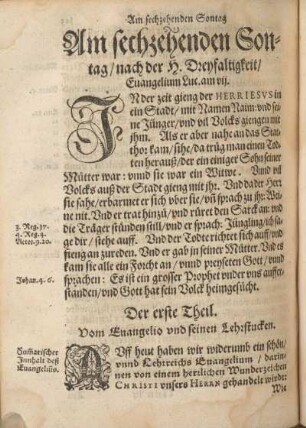 Am sechzehenden Sontag
Am sechzehenden Son-
tag / nach der H. Dreyfaltigkeit /
Euangelium Luc. am vij.
IN der zeit gieng der HERR IESVS in
ein Stadt / mit Namen Naim: vnd sei-
ne Jünger / vnd vil Volcks giengen mit
jhm. Als er aber nahe an das Stat-
thor kam / sihe / da trůg man einen Tod-
ten herauß / der ein einiger Sohn seiner
Můtter war: vnnd sie war ein Witwe. Vnnd vil
Volcks auß der Stadt gieng mit jhr. Vnd da der Herr
sie sahe / erbarmet er sich vber sie / vñ sprach zu jhr: Wei-
ne nit. Vnd er trat hinzů / vnd růret den Sarck an: vnd
die Träger stůnden still / vnd er sprach: Jüngling / ich sa-
ge dir / stehe auff. Vnd der Todte richtet sich auff / vnd
fieng an zureden. Vnd er gab jn seiner Můtter. Vnd es
kam sie alle ein Forcht an / vnnd preyseten Gott / vnnd
sprachen: Es ist ein grosser Prophet vnder vns auffer-
standen / vnd Gott hat sein Volck heimgesůcht.
3. Reg. 17.
4. Reg. 4.
Actor. 9. 20.
Johan. 4. 6.
Der erste Theil.
Vom Euangelio vnd seinen Lehrstucken.
Sumarischer
Innhalt deß
Euangeliũs.
AUff heut haben wir widerumb ein schön /
vnnd Lehrreichs Euangelium / darin-
nen von einem herrlichen Wunderzeichen
CHRISTI vnsers HERRN gehandelt wirdt:
Wie